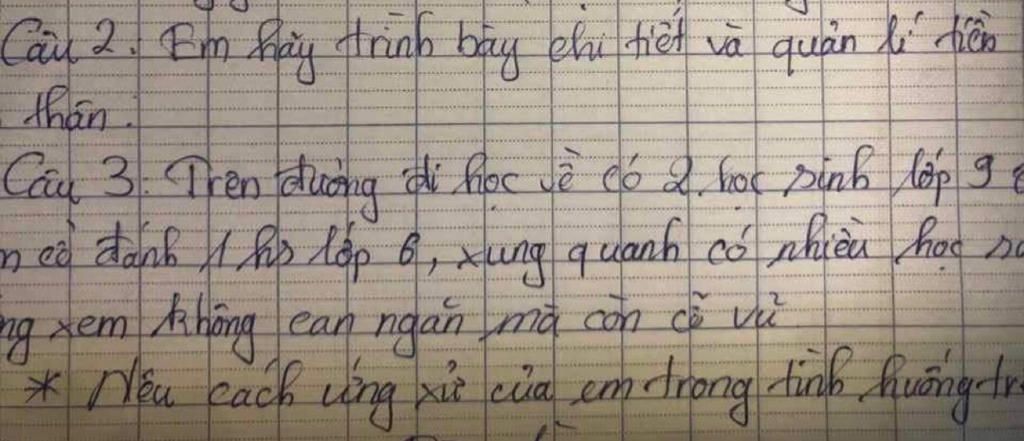 Câu 2. Em hãy trình bày chi tiết và quản lí tiền
thân.
Câu 3. Trên đường đi học về có 2 học sinh lớp 9
đánh 1 hs lớp 6, xung quanh có nhiều học
xem không can ngăn mà còn cỗ vũ
* Nêu cách ứng xử của em trong tình huống